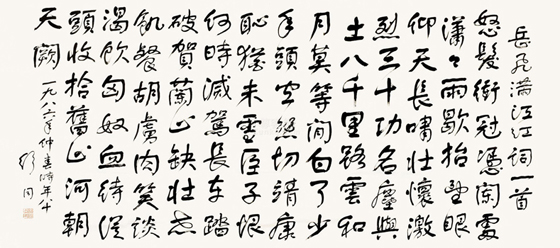 岳飛滿江紅詞一首
怒髮衝冠憑闌處
瀟々雨歇抬望眼
仰天長嘯壯懷激
烈三十功名塵與
土八千里路雲和
月莫等閒白了少
年頭空悲切靖康
恥猶未雪臣子恨
何時滅駕長車踏
破賀蘭山缺壯志
飢餐胡虜肉笑談
渴飲匈奴血待從
頭收拾舊山河朝
天闕
一九八六年仲春時年八十
舒同